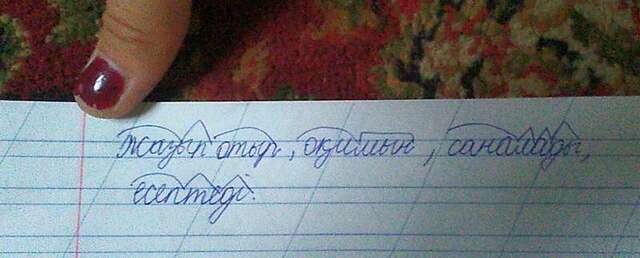 жазып отыр, оқимын, саналады,
есептеді.